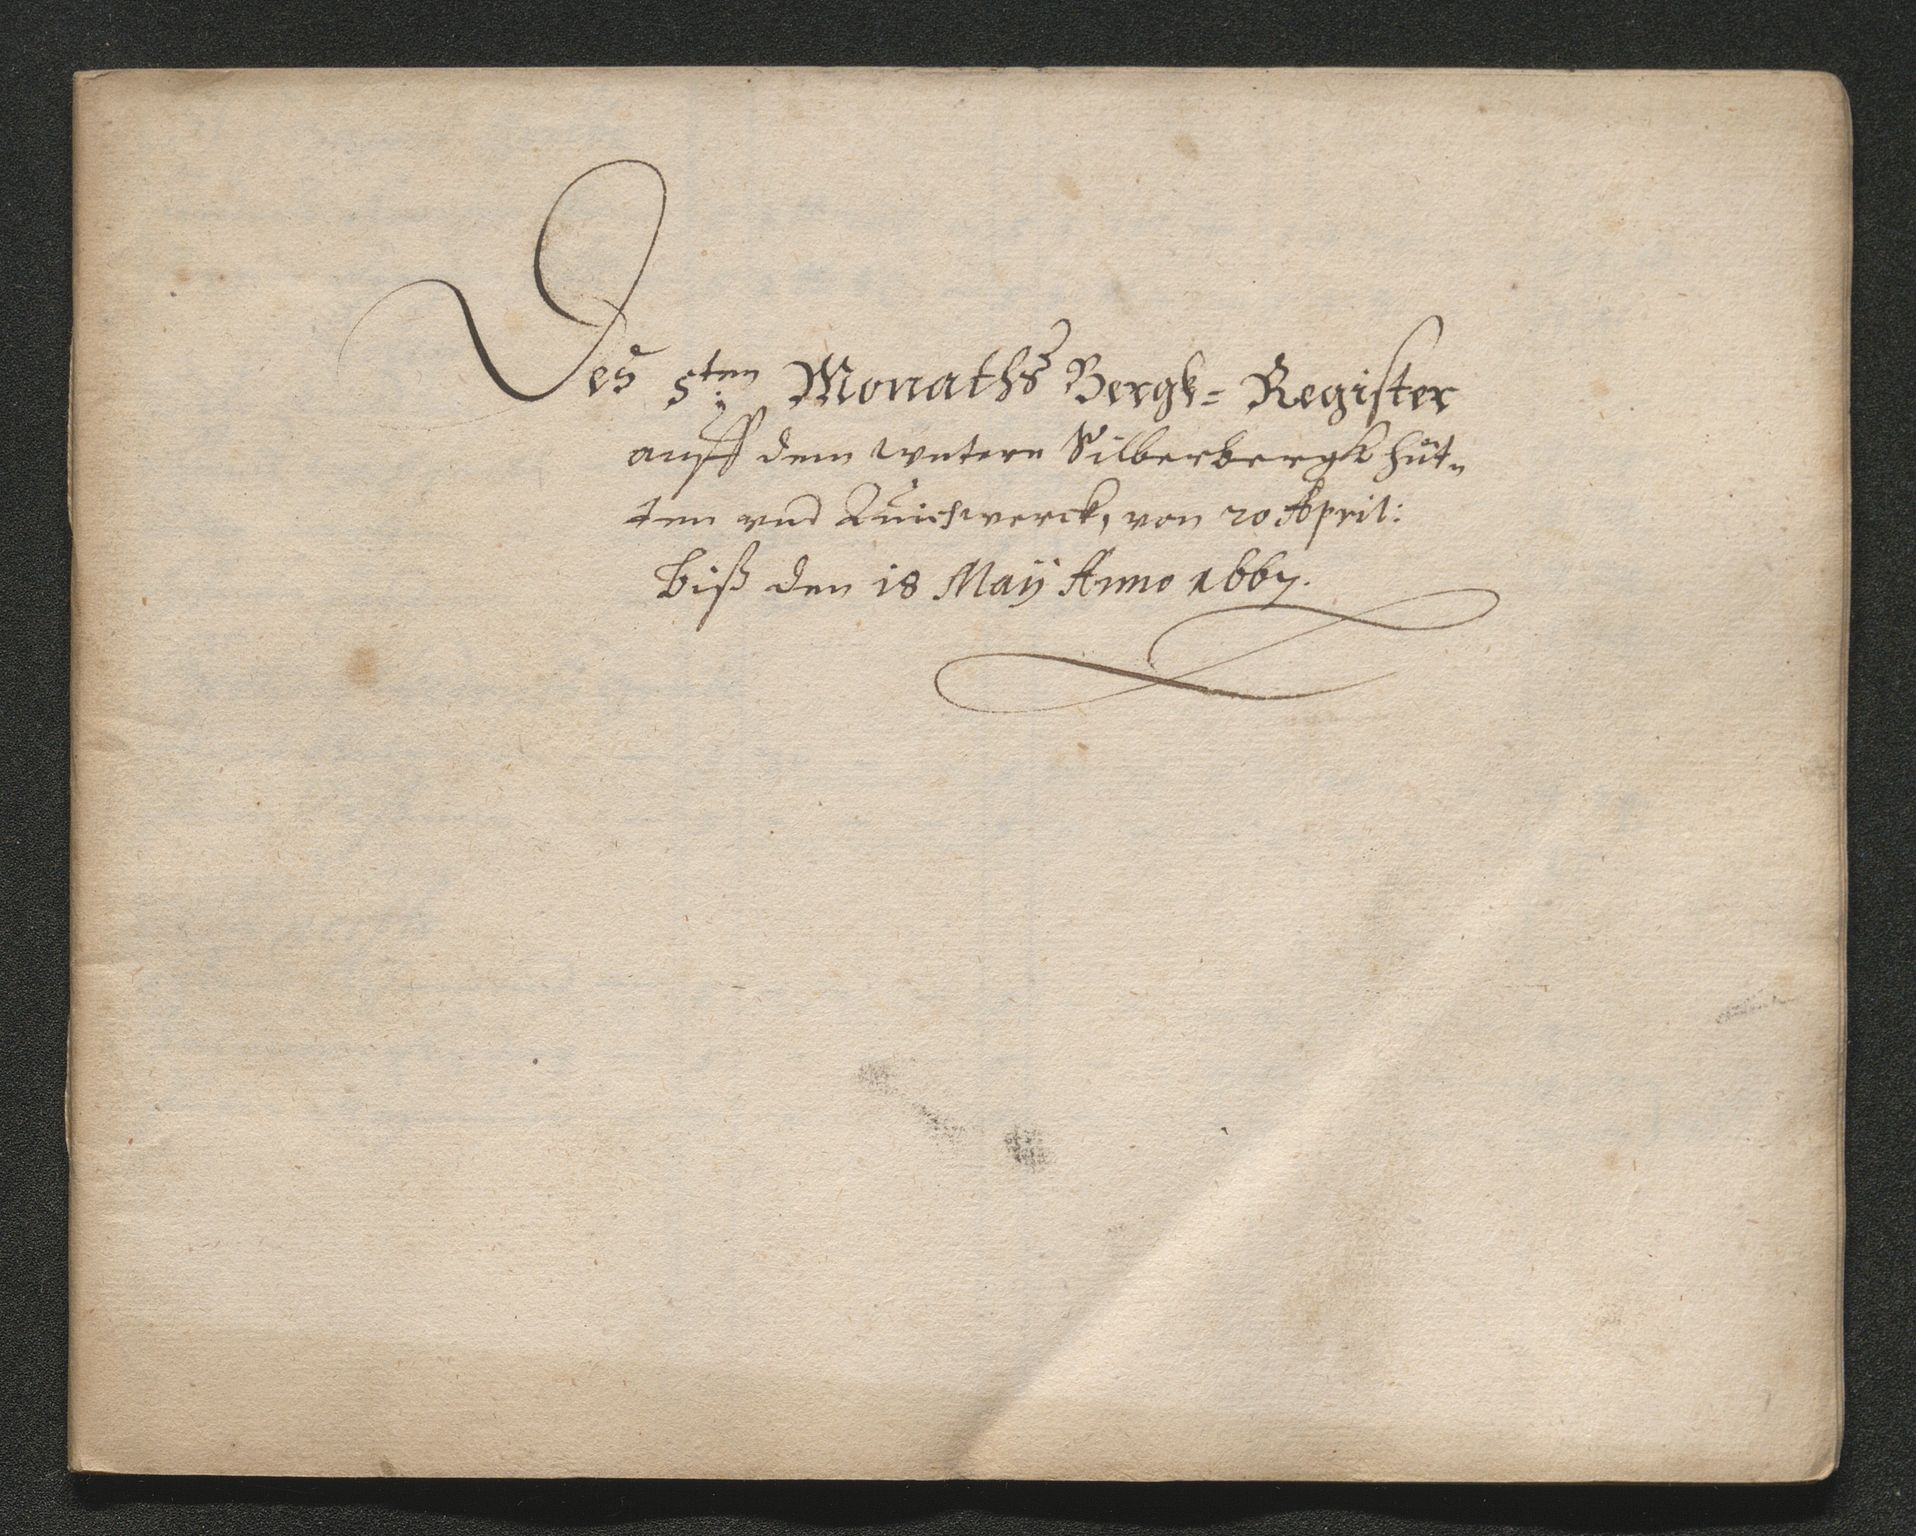 Des 5ten Monaths Bergk= Register
auff dem untern Silberbergk hüt=
ten und Quichwerck, von 20 April:
biß den 18 Maÿ Anno 1667.